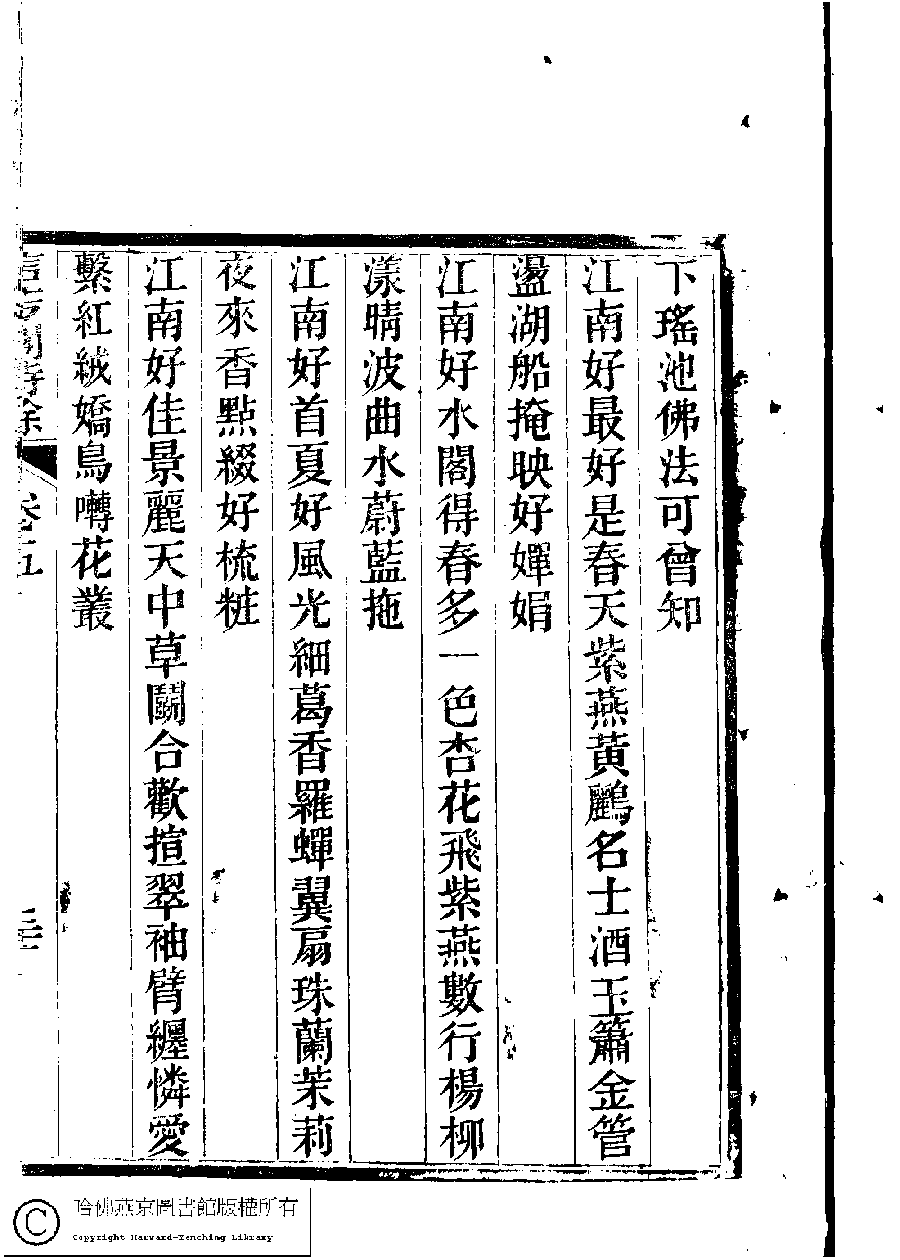 下瑤池佛法可曾知
江南好最好是春天紫燕黃鸝名士酒玉簫金管
盪湖船掩映好嬋娟
江南好水閣得春多一色杏花飛紫燕數行楊柳
漾晴波曲水蔚藍拖
江南好首夏好風光細葛香羅蟬翼扇珠蘭茉莉
夜來香點綴好梳粧
江南好佳景麗天中草鬭合歡揎翠袖臂纏憐愛
繫紅絨嬌鳥囀花叢
卷五
哈佛燕京圖書館版權所有
Copyright Harvard-Yenching Library